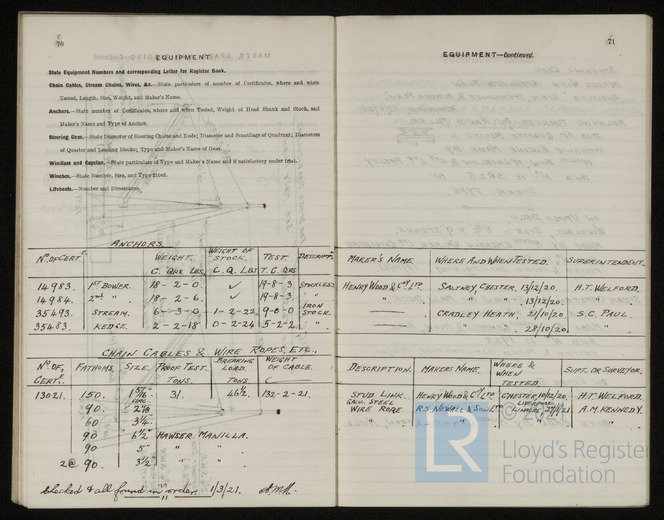 70
EQUIPMENT.
State Equipment Numbers and corresponding Letter for Register Book.
Chain Cables, Stream Chains, Wires, &c.—State particulars of number of Certificates, where and when
Tested, Length, Size, Weight, and Maker's Name.
Anchors.—State number of Certificates, where and when Tested, Weight of Head Shank and Stock, and
Maker's Name and Type of Anchor.
Steering Gear.—State Diameter of Steering Chains and Rods; Diameter and Scantlings of Quadrant; Diameters
of Quarter and Leading Blocks; Type and Maker's Name of Gear.
Windlass and Capstan.—State particulars of Type and Maker's Name and if satisfactory under trial.
Winches.—State Number, Size, and Type fitted.
Lifeboats.—Number and Dimensions.
ANCHORS
No. OF CERT. WEIGHT. WEIGHT OF STOCK. TEST. DESCRIPTn.
C. QRS LBS. C. Q. LBS T. C. QRS
14983. 1ST BOWER. 18 - 2 - 0. ✓ 19-8-3. STOCKLESS
14984. 2nd " 18 - 2 - 6. ✓ 19-8-3. "
35493. STREAM. 6 - 3 - 0 1-2-22 9-0-0 IRON STOCK.
35483. KEDGE. 2-2-18 0-2-24 5-2-2. "
CHAIN CABLES & WIRE ROPES, ETC.,
No. OF CERTe. FATHOMS. SIZE. PROOF TEST. BREAKING LOAD. WEIGHT OF CABLE.
TONS. TONS C
13021. 150. 31. 46½. 132-2-21.
90.
60 3¼"
90 6½" HAWSER MANILLA.
90 5" " "
2@ 90. 3½" " "
Checked & all found in order. 1/3/21. A.M.K.
71
EQUIPMENT—Continued.
MAKER'S NAME. WHERE AND WHEN TESTED. SUPERINTENDENT.
HENRY WOOD & Coy LTD SALTNEY, CHESTER. 13/12/20. H.T. WELFORD.
" " 13/12/20. "
CRADLEY HEATH. 21/10/20. S.C. PAUL.
" 28/10/20. "
DESCRIPTION. MAKERS NAME. WHERE & WHEN TESTED. SUPT. OR SURVEYOR.
STUD LINK. HENRY WOOD & Coy LTD CHESTER, 10/12/20. H.T. WELFORD.
GALV. STEEL WIRE ROPE R.S. NEWALL & SON LTD A.M. KENNEDY.
" " "
LR
Lloyd's Register
Foundation